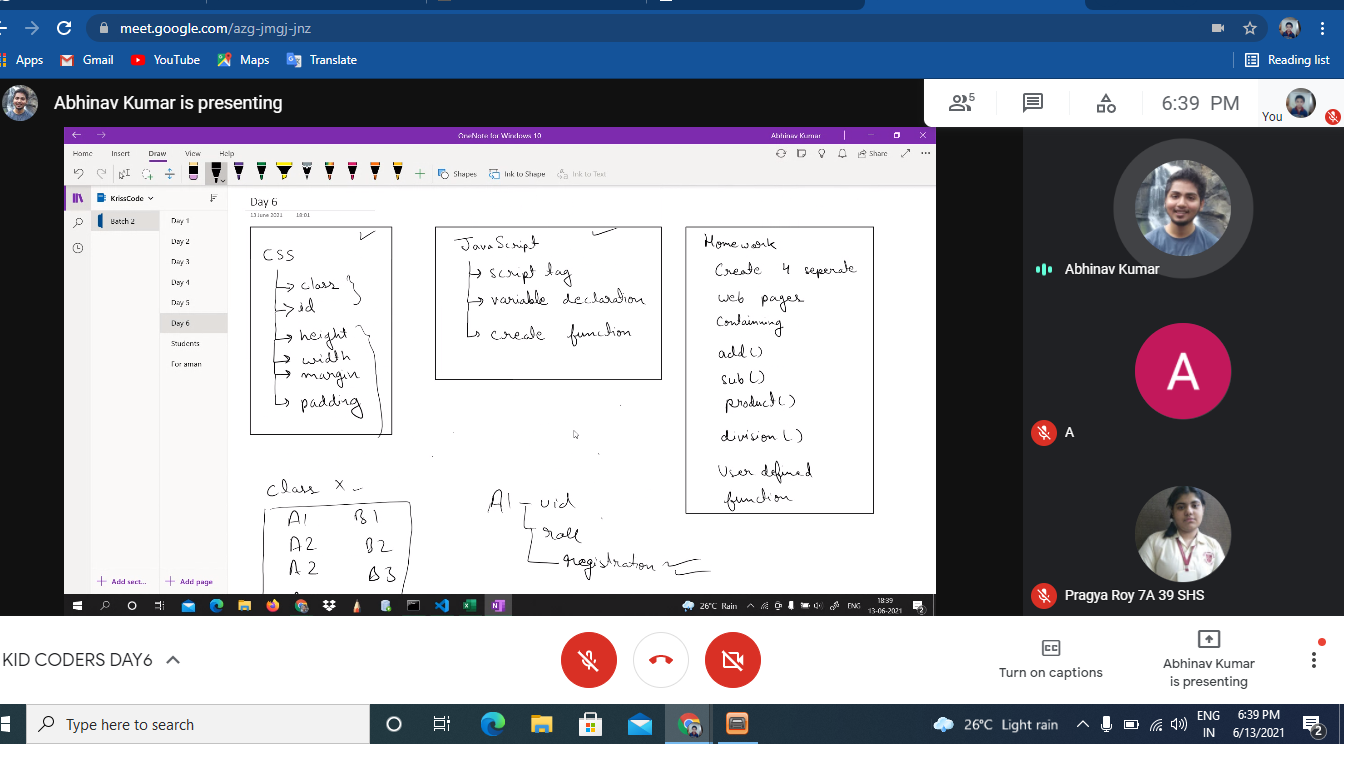 meet.google.com/azg-jmgj-jnz
Apps Gmail YouTube Maps Translate Reading list
Abhinav Kumar is presenting
5
6:39 PM
You
OneNote for Windows 10
Abhinav Kumar
Home Insert Draw View Help
Share
Shapes Ink to Shape Ink to Text
KrissCode
Batch 2
Day 1
Day 2
Day 3
Day 4
Day 5
Day 6
Students
For aman
Add sect...
Add page
Day 6
13 June 2021 18:01
CSS
class
id
height
width
margin
padding
JavaScript
script tag
variable declaration
create function
Homework
Create 4 seperate
web pages
Containning
add()
sub()
product()
division()
User defined
function
class X
A1 B1
A2 B2
A2 B3
A1 uid
roll
registration
26°C Rain
ENG
18:39
13-06-2021
2
Abhinav Kumar
A
A
Pragya Roy 7A 39 SHS
KID CODERS DAY6
CC
Turn on captions
Abhinav Kumar
is presenting
Type here to search
26°C Light rain
ENG
IN
6:39 PM
6/13/2021
2